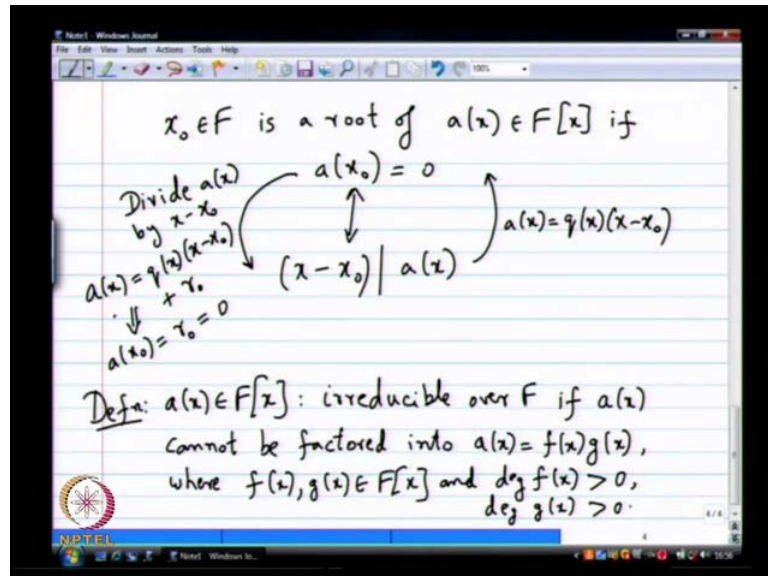 Note1 - Windows Journal
File Edit View Insert Actions Tools Help
100%
x₀ ∈ F is a root of a(x) ∈ F[x] if
a(x₀) = 0
Divide a(x)
by x - x₀
a(x) = q(x)(x-x₀)
+ r₀
⇓
a(x₀) = r₀ = 0
↕
(x - x₀) | a(x)
a(x) = q(x)(x-x₀)
Defn: a(x) ∈ F[x] : irreducible over F if a(x)
cannot be factored into a(x) = f(x)g(x),
where f(x), g(x) ∈ F[x] and deg f(x) > 0,
deg g(x) > 0.
4/4
4
NPTEL
Note1 - Windows Jo...
16:56